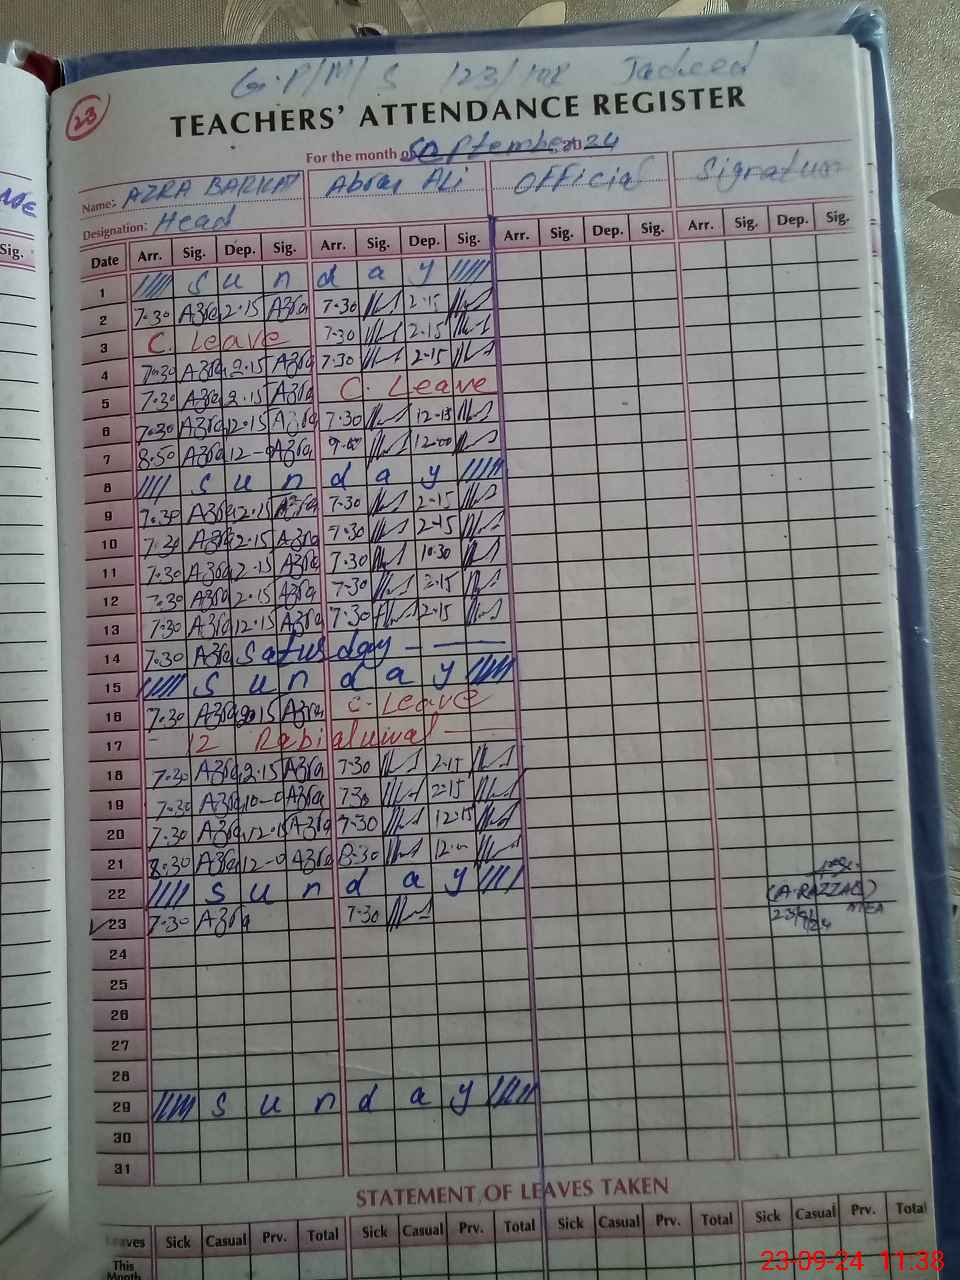 G.P/M/S 123/10R Jadeed
23
TEACHERS' ATTENDANCE REGISTER
For the month of September, 2024
Name: AZRA BARKAT Abrar Ali Official Signature
Designation: Head
Date Arr. Sig. Dep. Sig. Arr. Sig. Dep. Sig. Arr. Sig. Dep. Sig. Arr. Sig. Dep. Sig.
1 Sunday
2 7.30 Azra 2.15 Azra 7.30 2.15
3 C. Leave 7.30 2.15
4 7.30 Azra 2.15 Azra 7.30 2.15
5 7.30 Azra 2.15 Azra C. Leave
6 7.30 Azra 12.15 Azra 7.30 12.15
7 8.50 Azra 12-0 Azra 12.00
8 Sunday
9 7.30 Azra 2.15 Azra 7.30 2.15
10 7.30 Azra 2.15 Azra 7.30 2.15
11 7.30 Azra 2.15 Azra 7.30 10.30
12 7.30 Azra 2.15 Azra 7.30 2.15
13 7.30 Azra 12.15 Azra 7.30 2.15
14 7.30 Azra Saturday - —
15 Sunday
16 7.30 Azra 2.15 Azra C. Leave
17 - 12 Rabialuwal —
18 7.30 Azra 2.15 Azra 7.30 2.15
19 7.30 Azra 10-0 Azra 7.30 2.15
20 7.30 Azra 12.15 Azra 7.30 12.15
21 8.30 Azra 12-0 Azra 8.30 12.
22 Sunday (A.RAZZAQ)
23 7.30 Azra 7.30 23/9/24 AEA
24
25
26
27
28
29 Sunday
30
31
STATEMENT OF LEAVES TAKEN
Leaves Sick Casual Prv. Total Sick Casual Prv. Total Sick Casual Prv. Total Sick Casual Prv. Total
This
Month
23-09-24 11:38
Sig.